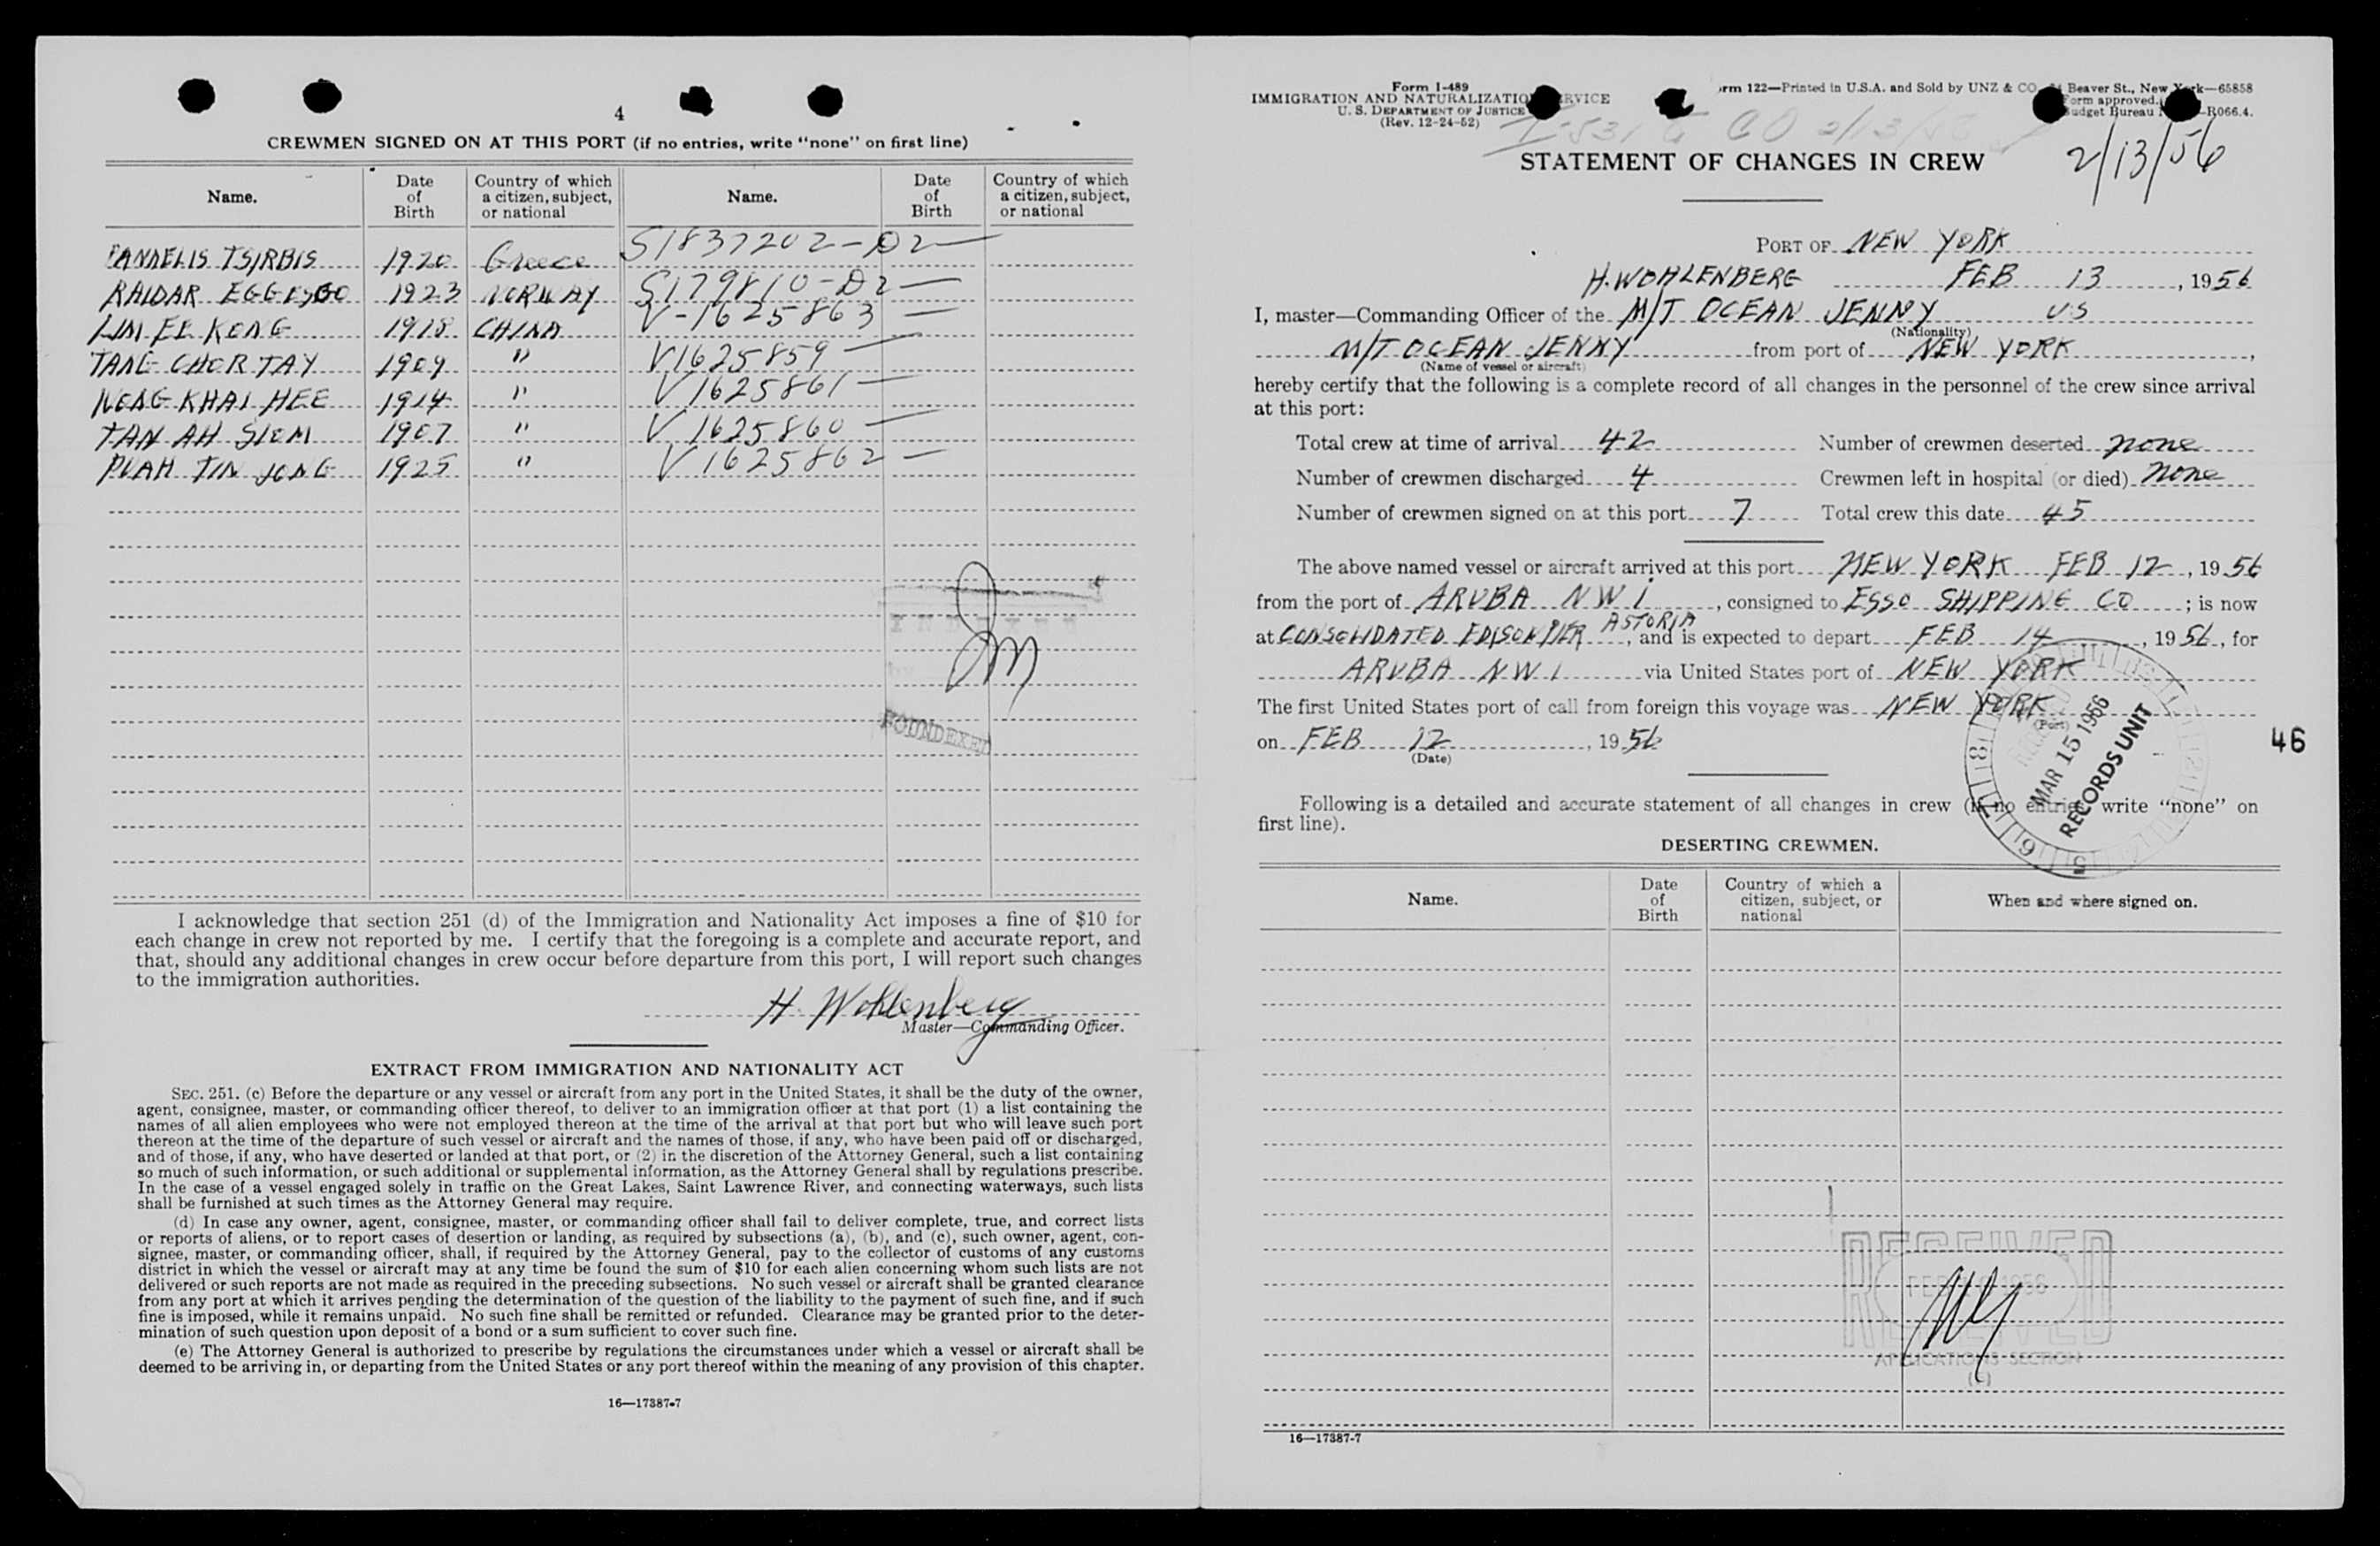 4
CREWMEN SIGNED ON AT THIS PORT (if no entries, write "none" on first line)
Name. Date of Birth Country of which a citizen, subject, or national Name. Date of Birth Country of which a citizen, subject, or national
TSIRBIS 1920 Greece S1837202-D2
RAIDAR 1923 NORWAY S179810-D2
LIM EE KONG 1918 CHINA V-1625863
TANG CHOR TAY 1909 " V1625859
KHAI HEE 1914 " V1625861
TAN AH SIOM 1907 " V1625860
PUAH TIN JONG 1925 " V1625862
I acknowledge that section 251 (d) of the Immigration and Nationality Act imposes a fine of $10 for
each change in crew not reported by me. I certify that the foregoing is a complete and accurate report, and
that, should any additional changes in crew occur before departure from this port, I will report such changes
to the immigration authorities.
H. Wohlenberg
Master—Commanding Officer.
EXTRACT FROM IMMIGRATION AND NATIONALITY ACT
SEC. 251. (c) Before the departure or any vessel or aircraft from any port in the United States, it shall be the duty of the owner,
agent, consignee, master, or commanding officer thereof, to deliver to an immigration officer at that port (1) a list containing the
names of all alien employees who were not employed thereon at the time of the arrival at that port but who will leave such port
thereon at the time of the departure of such vessel or aircraft and the names of those, if any, who have been paid off or discharged,
and of those, if any, who have deserted or landed at that port, or (2) in the discretion of the Attorney General, such a list containing
so much of such information, or such additional or supplemental information, as the Attorney General shall by regulations prescribe.
In the case of a vessel engaged solely in traffic on the Great Lakes, Saint Lawrence River, and connecting waterways, such lists
shall be furnished at such times as the Attorney General may require.
(d) In case any owner, agent, consignee, master, or commanding officer shall fail to deliver complete, true, and correct lists
or reports of aliens, or to report cases of desertion or landing, as required by subsections (a), (b), and (c), such owner, agent, con-
signee, master, or commanding officer, shall, if required by the Attorney General, pay to the collector of customs of any customs
district in which the vessel or aircraft may at any time be found the sum of $10 for each alien concerning whom such lists are not
delivered or such reports are not made as required in the preceding subsections. No such vessel or aircraft shall be granted clearance
from any port at which it arrives pending the determination of the question of the liability to the payment of such fine, and if such
fine is imposed, while it remains unpaid. No such fine shall be remitted or refunded. Clearance may be granted prior to the deter-
mination of such question upon deposit of a bond or a sum sufficient to cover such fine.
(e) The Attorney General is authorized to prescribe by regulations the circumstances under which a vessel or aircraft shall be
deemed to be arriving in, or departing from the United States or any port thereof within the meaning of any provision of this chapter.
16—17387-7
Form I-489
IMMIGRATION AND NATURALIZATION SERVICE
U. S. DEPARTMENT OF JUSTICE
(Rev. 12-24-52)
122—Printed in U.S.A. and Sold by UNZ & CO. Beaver St., New York—65858
Form approved.
Budget Bureau R066.4.
2/13/56
STATEMENT OF CHANGES IN CREW
PORT OF NEW YORK
H. WOHLENBERG FEB 13, 1956
I, master—Commanding Officer of the M/T OCEAN JENNY US
(Nationality)
M/T OCEAN JENNY from port of NEW YORK,
(Name of vessel or aircraft)
hereby certify that the following is a complete record of all changes in the personnel of the crew since arrival
at this port:
Total crew at time of arrival 42 Number of crewmen deserted none
Number of crewmen discharged 4 Crewmen left in hospital (or died) none
Number of crewmen signed on at this port 7 Total crew this date 45
The above named vessel or aircraft arrived at this port NEW YORK FEB 12, 1956
from the port of ARUBA NWI, consigned to ESSO SHIPPING CO; is now
at CONSOLIDATED EDISON PIER ASTORIA, and is expected to depart FEB 14, 1956, for
ARUBA NWI via United States port of NEW YORK
The first United States port of call from foreign this voyage was NEW YORK
(Port)
on FEB 12, 1956
(Date)
MAR 15 1956
RECORDS UNIT
46
Following is a detailed and accurate statement of all changes in crew (if no entries write "none" on
first line).
DESERTING CREWMEN.
Name. Date of Birth Country of which a citizen, subject, or national When and where signed on.
RECEIVED
APPLICATIONS SECTION
16—17387-7